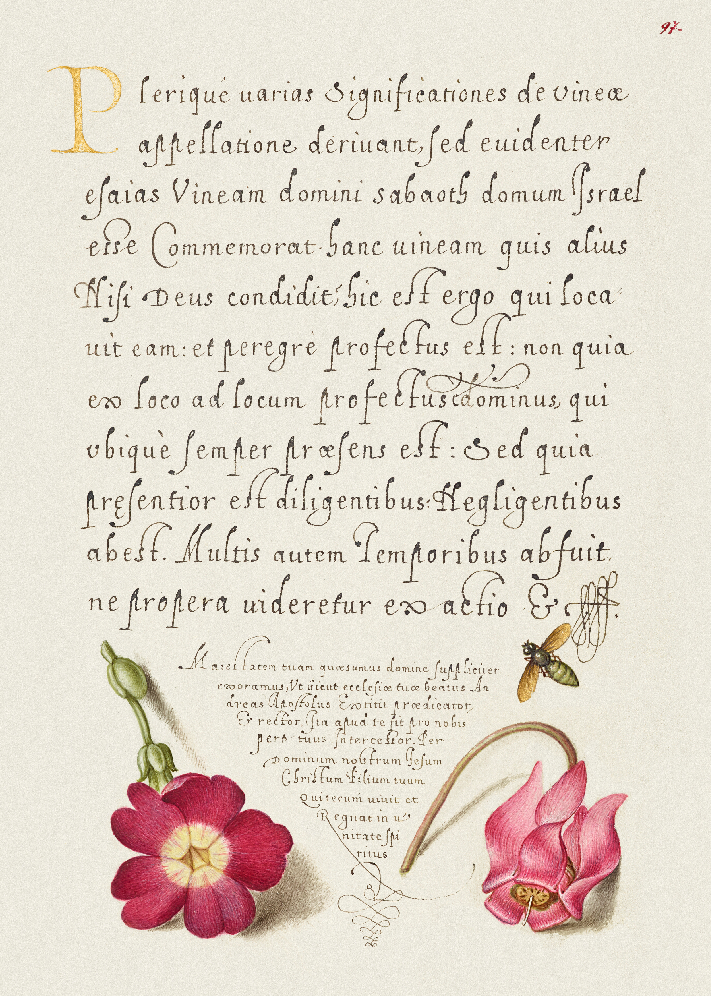 97.
Plerique uarias Significationes de vineæ
appellatione deriuant, sed euidenter
esaias Vineam domini sabaoth domum Israel
esse Commemorat. hanc uineam quis alius
Nisi Deus condidit; hic est ergo qui loca-
uit eam: et peregrè profectus est: non quia
ex loco ad locum profectus dominus, qui
vbiquè semper præsens est: Sed quia
pręsentior est diligentibus: Negligentibus
abest. Multis autem Temporibus abfuit
ne propera uideretur exactio &
Maiestatem tuam quæsumus domine suppliciter
exoramus, Vt sicut ecclesiæ tuæ beatus An
dreas Apostolus Extitit prædicator,
Et rector, sia apud te sit pro nobis
perpetuus Intercessor. Per
Dominum nostrum Iesum
Christum Filium tuum
Qui tecum uiuit et
Regnat in u-
nitate spi
ritus